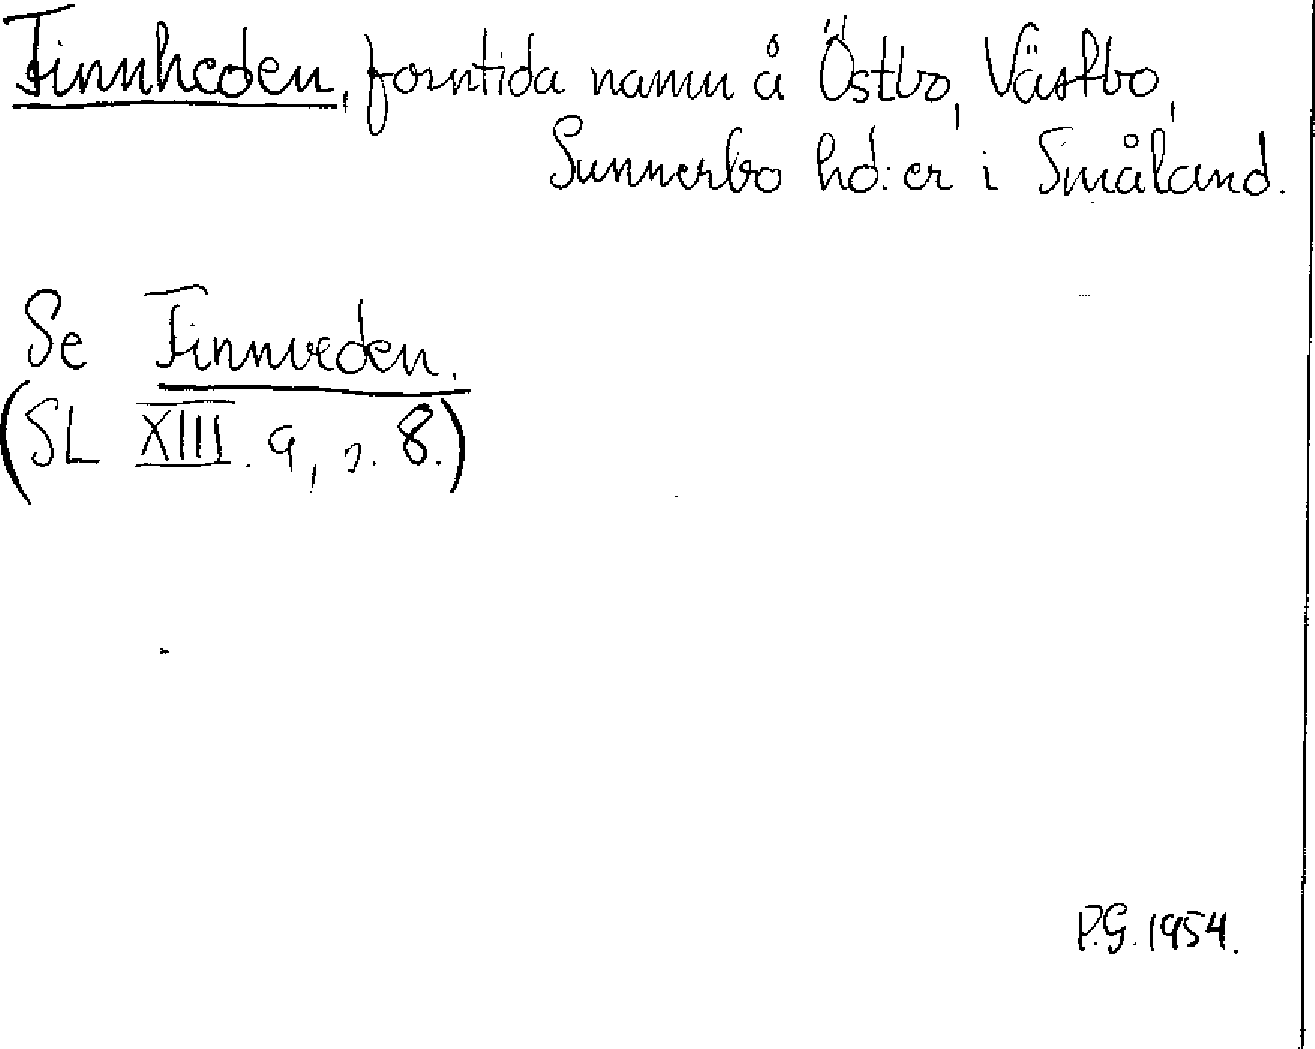 Finnheden, forntida namn å Östbo, Västbo,
Sunnerbo hd:er i Småland.
Se Finnveden.
(SL XIII. 9, s. 8.)
P.G. 1954.